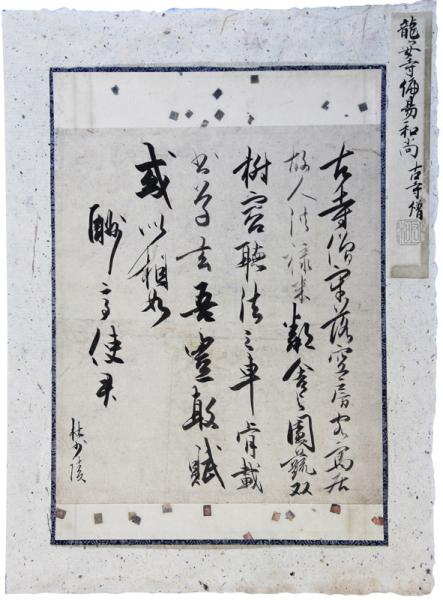 龍安寺偏易和尚 古寺僧
古寺僧牢落空房客寓居
故人供禄米鄰舍与園蔬双
樹容聴法三車肯載
書草玄吾豈敢賦
或似相如
酬高使君
杜少陵